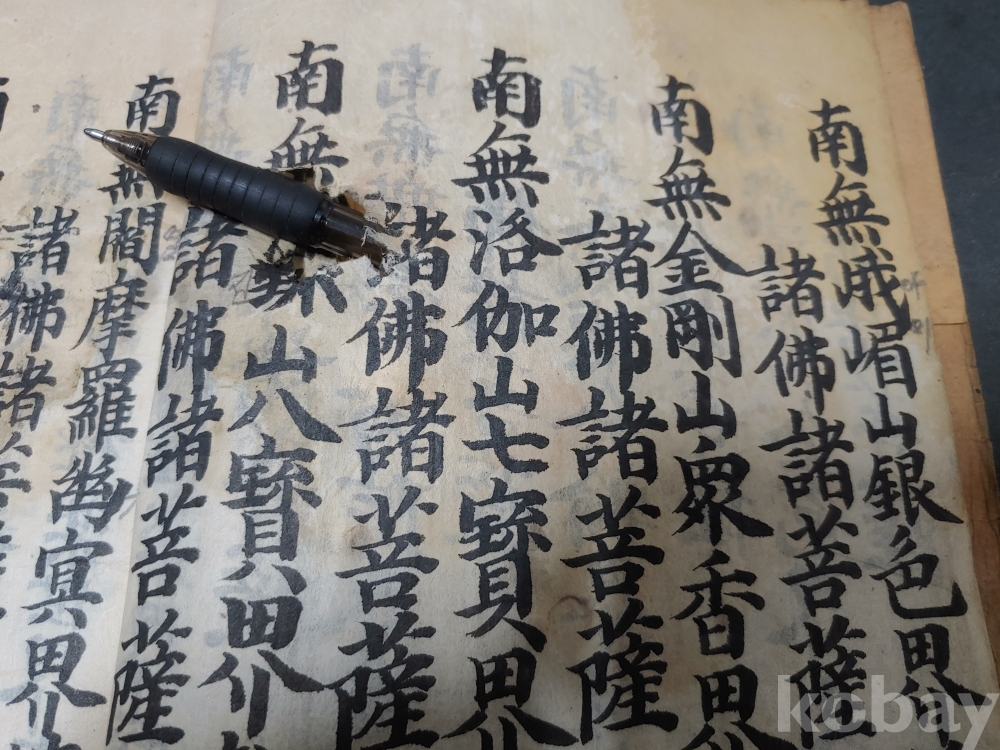 南無峨嵋山銀色界
諸佛諸菩薩
南無金剛山衆香界
諸佛諸菩薩
南無洛伽山七寶界
諸佛諸菩薩
南無山八寶界
諸佛諸菩薩
南無閻摩羅幽冥界
諸佛諸菩
kobay